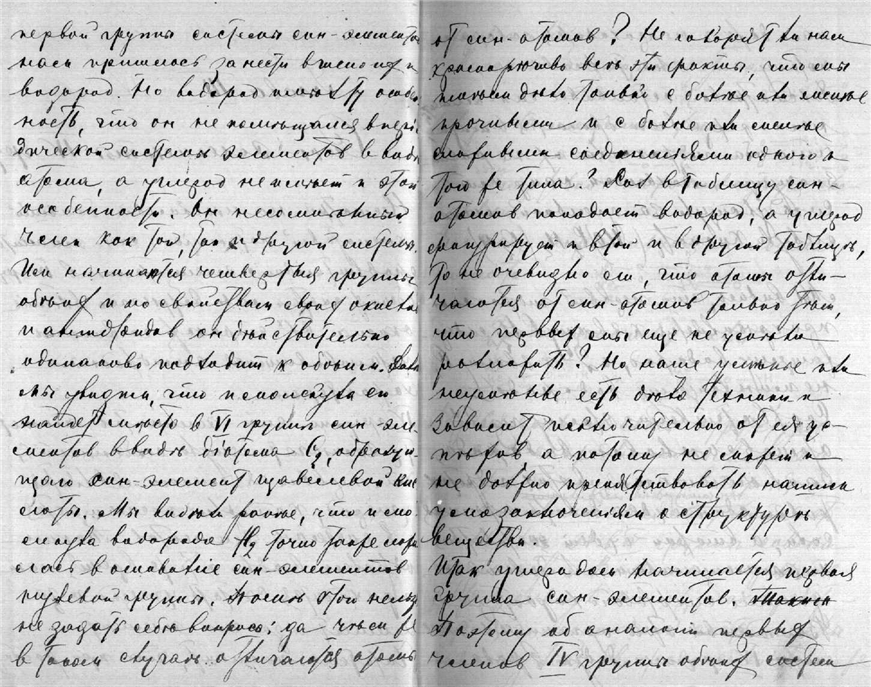 первой группы системы син-элементов
намъ пришлось занести въ число и
водородъ. Но водородъ имѣлъ ту особен-
ность, что он не помѣщался в пері-
одической системѣ элементов в видѣ
атома, а углерод не имѣет и этой
особенности. Он несомнѣнный
член как той, так и другой системы.
Им начинаются четвертыя группы
обоих и по свойствам своих окислов
и ангидридов он дѣйствительно
одинаково подходит к обоим. Далѣе
мы увидим, что и молекула ея
найдет мѣсто в VI группѣ син-эле-
ментов в видѣ біатома C₂, образую-
щаго син-элемент щавелевой кис-
лоты. Мы видѣли ранѣе, что и мо-
лекула водорода H₂ точно также
в основаніе син-элементов
нулевой группы. Послѣ этого нельзя
не задать себѣ вопроса: да чѣм же
в таком случаѣ отличаются атомы
от син-атомов? Не говорят ли нам
краснорѣчиво всѣ эти факты, что мы
имѣем дѣло только с болѣе или менѣе
прочными и с болѣе или менѣе
сложными соединеніями одного и
того же типа? Раз в таблицу син-
атомов попадает водород, а углерод
фигурирует и в той и в другой таблицѣ,
то не очевидно ли, что атомы отли-
чаются от син-атомов только тѣм,
что первых мы еще не успѣли
разложить? Но наше умѣнье или
неумѣнье есть дѣло техники и
зависит исключительно от ея ус-
пѣхов а потому не может и
не должно препятствовать нашим
умозаключеніям о структурѣ
вещества.
Итак углеродом начинается первая
группа син-элементов.
Поэтому об аналогіи первых
членов IV группы обоих систем